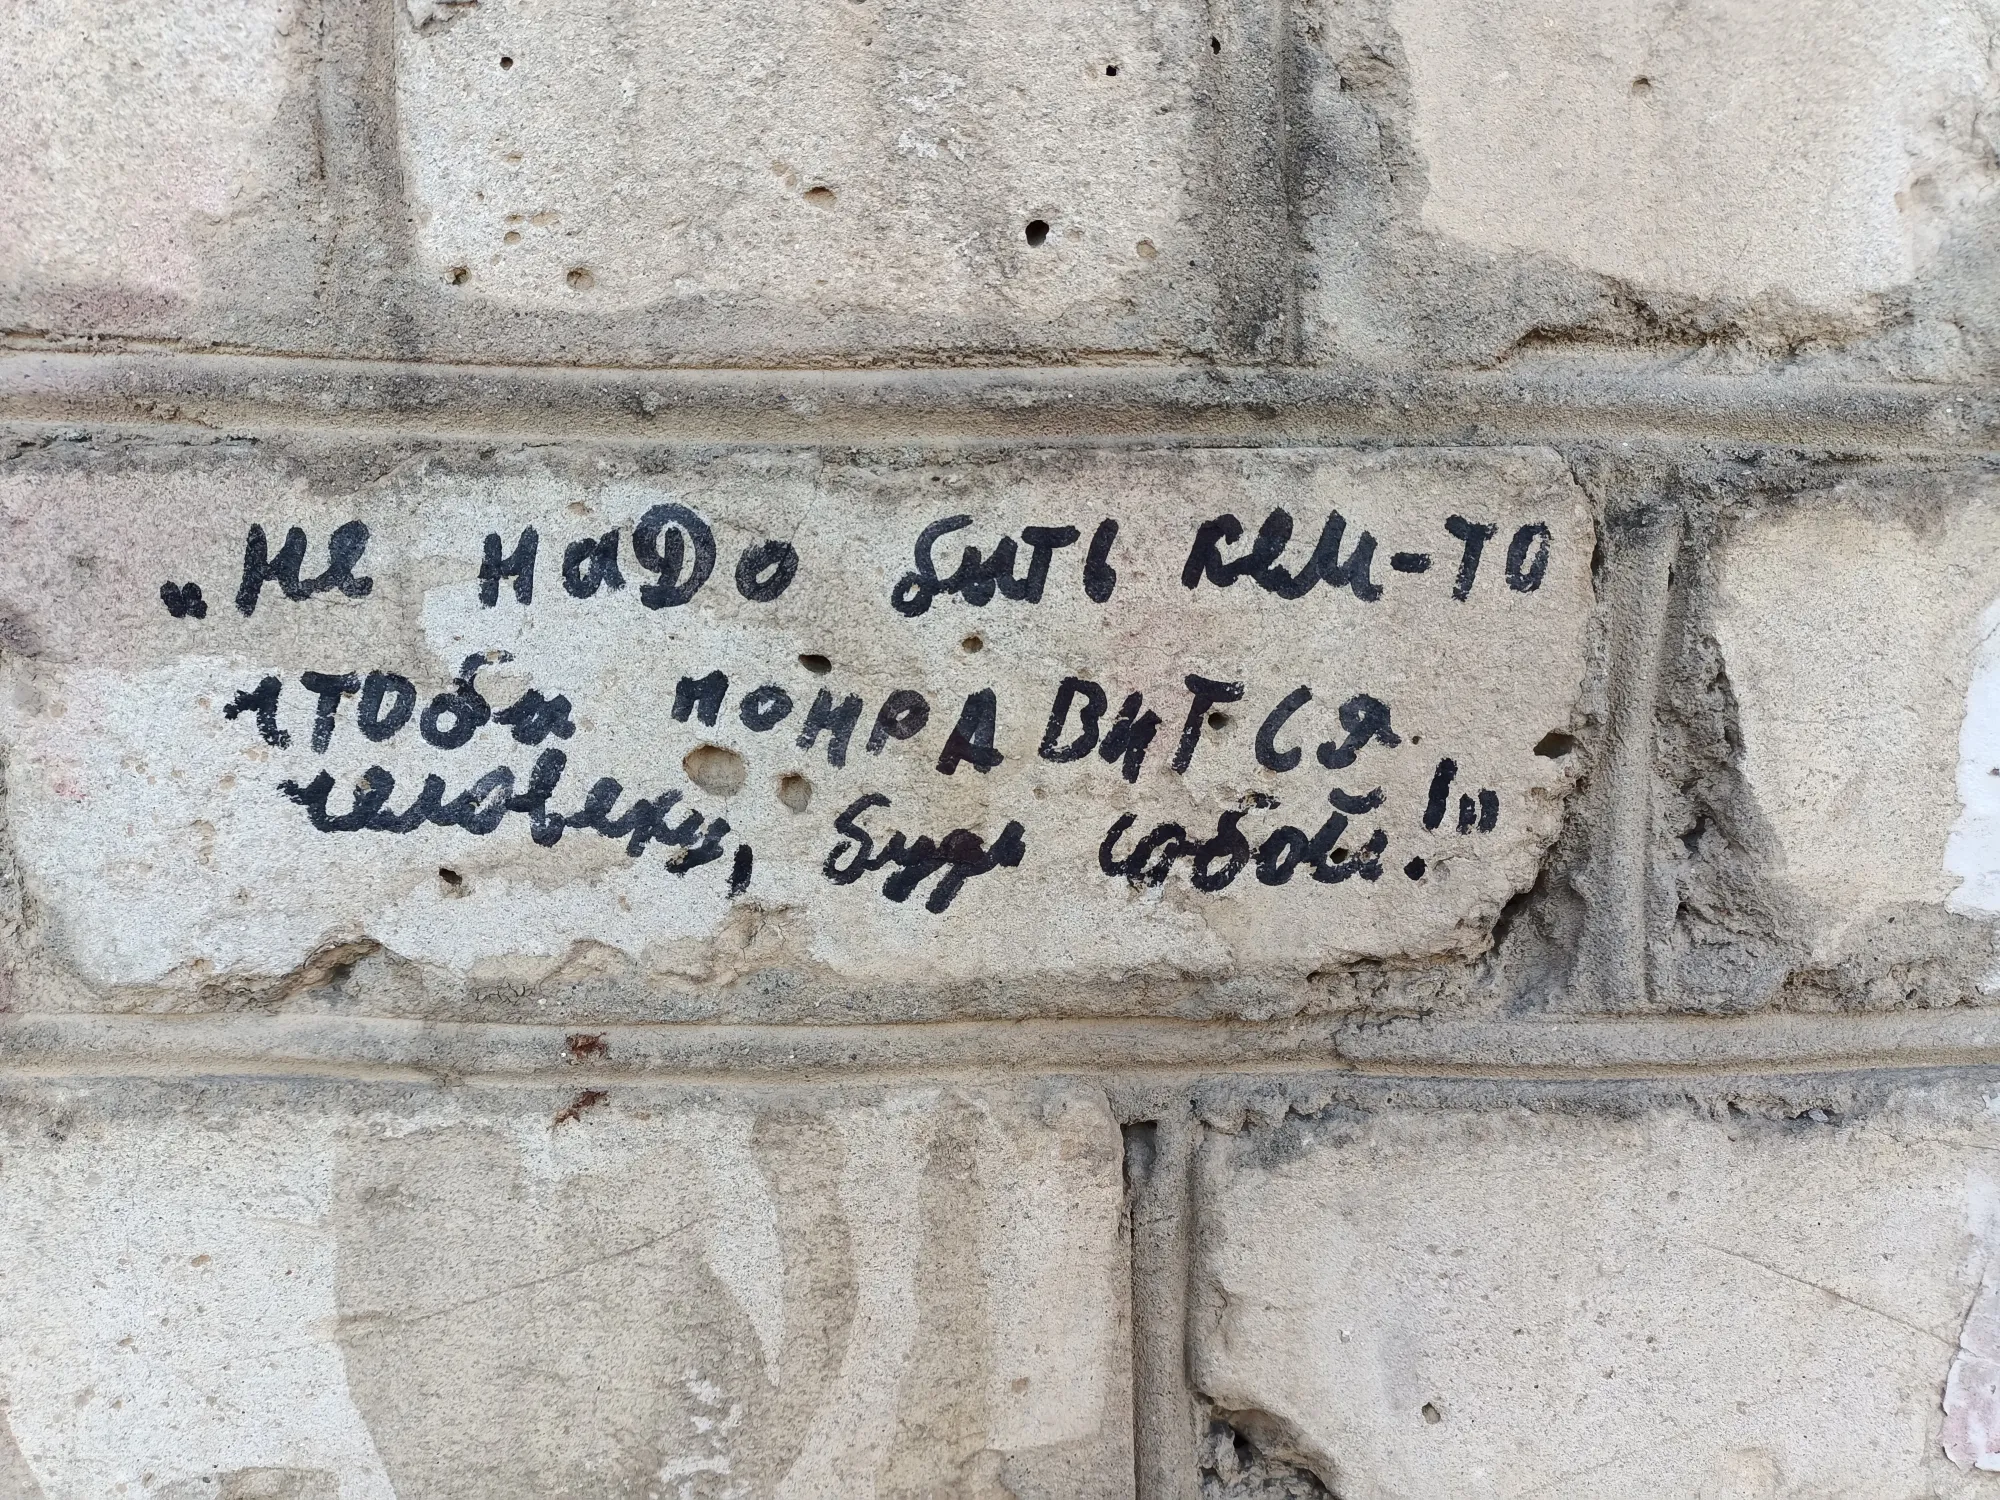 „Не надо бить кем-то
чтоби понравится
человеку, будь собой!"